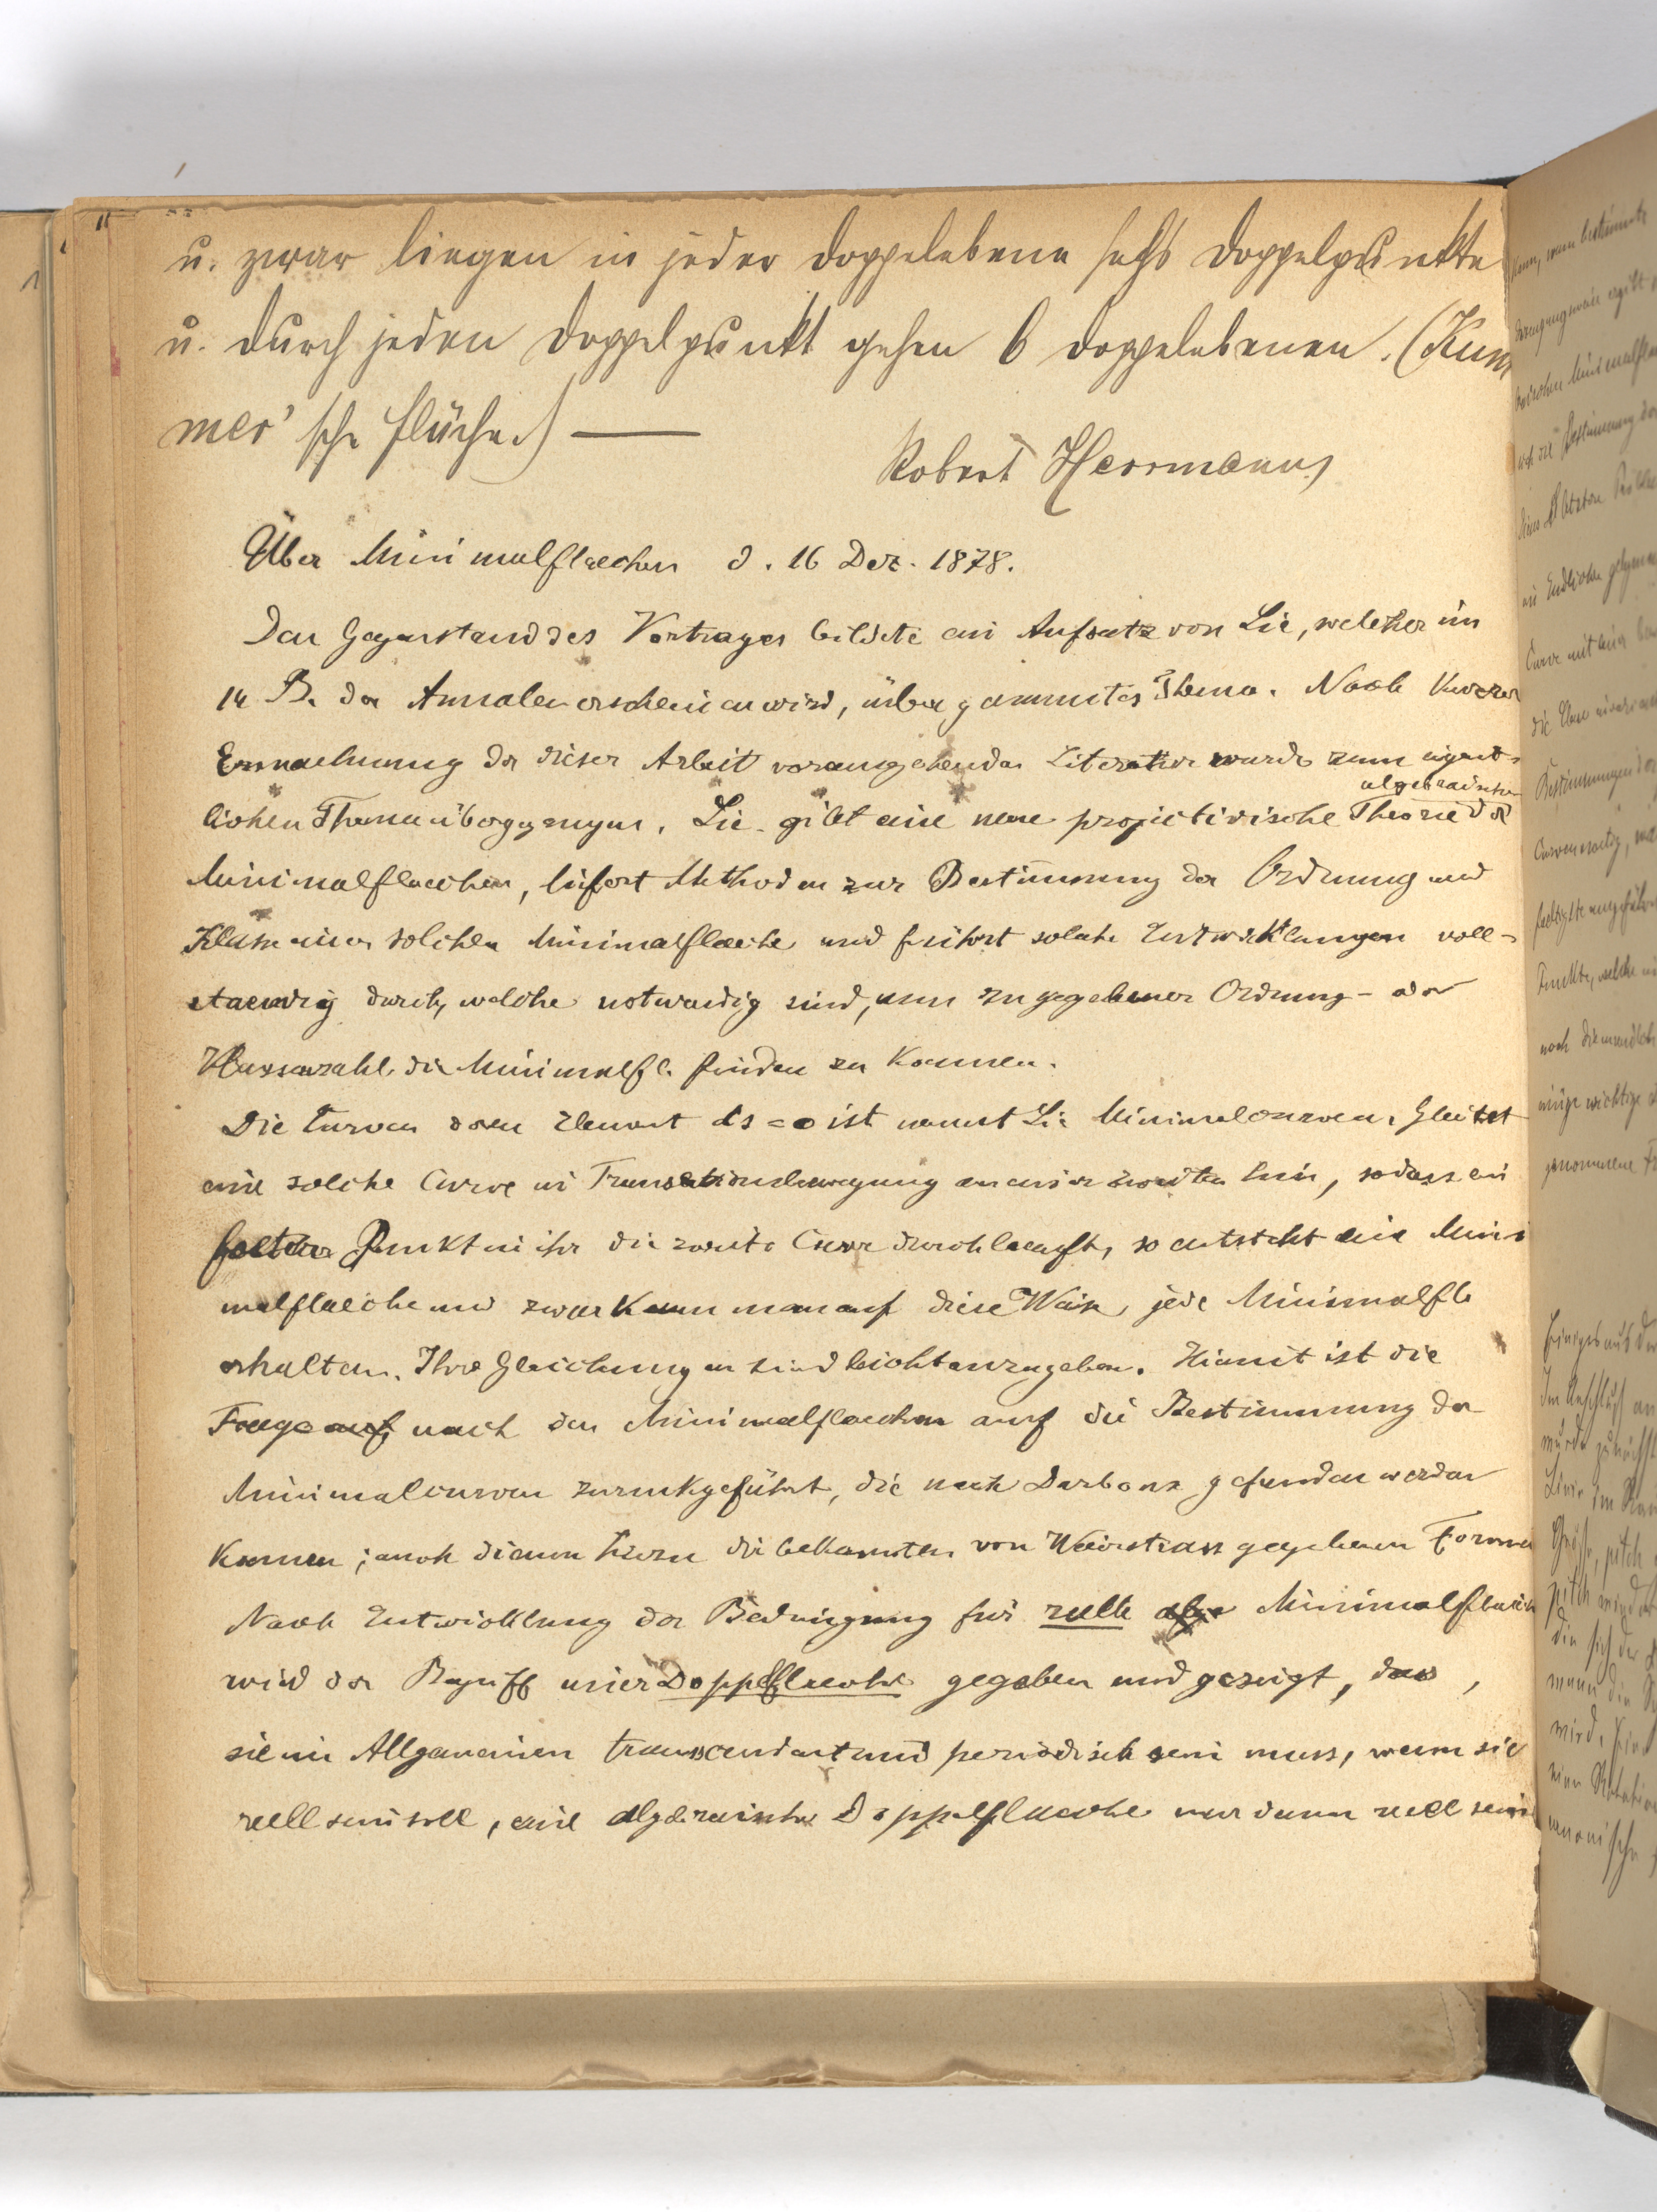 u. zwar liegen in jeder Doppelebene sechs Doppelpunkte
u. durch jeden Doppelpunkt gehen 6 Doppelebenen. (Kum
mer'sche Fläche.) —
Robert Herrmann
Über Minimalflaechen d. 16 Dez. 1878.
Den Gegenstand des Vortrages bildete ein Aufsatz von Lie, welcher im
14 B. der Annalen erscheinen wird, über genanntes Thema. Nach kurzer
Erwaehnung der dieser Arbeit vorangehenden Literatur wurde zum eigent-
lichen Thema übergegangen. Lie gibt eine neue projectivische Theorie der
algebraischen
Minimalflaechen, liefert Methoden zur Bestimmung der Ordnung und
Klasse einer solchen Minimalflaeche und führt solche Entwicklungen voll-
staendig durch, welche notwendig sind, um zu gegebener Ordnung- oder
Klassenzahl die Minimalfl. finden zu koennen.
Die Curven deren Element ds = o ist nennt Lie Minimalcurven. Gleitet
eine solche Curve in Translationsbewegung an einer zweiten hin, sodass ein
fester Punkt in ihr die zweite Curve durchlaeuft, so entsteht eine Mini
malflaeche und zwar kann man auf diese Weise jede Minimalfl
erhalten. Ihre Gleichungen sind leicht anzugeben. Hiemit ist die
Frage auf nach den Minimalflaechen auf die Bestimmung der
Minimalcurven zurükgeführt, die nach Darboux gefunden werden
koennen; auch dienen hiezu die bekannten von Weierstrass gegebenen Formeln
Nach Entwicklung der Bedingung für reelle alge Minimalflaech
wird der Begriff einer Doppelflaeche gegeben und gezeigt, dass,
sie im Allgemeinen transcendent und periodisch sein muss, wenn sie
reell sein soll, eine algebraische Doppelflaeche nur dann reell sein